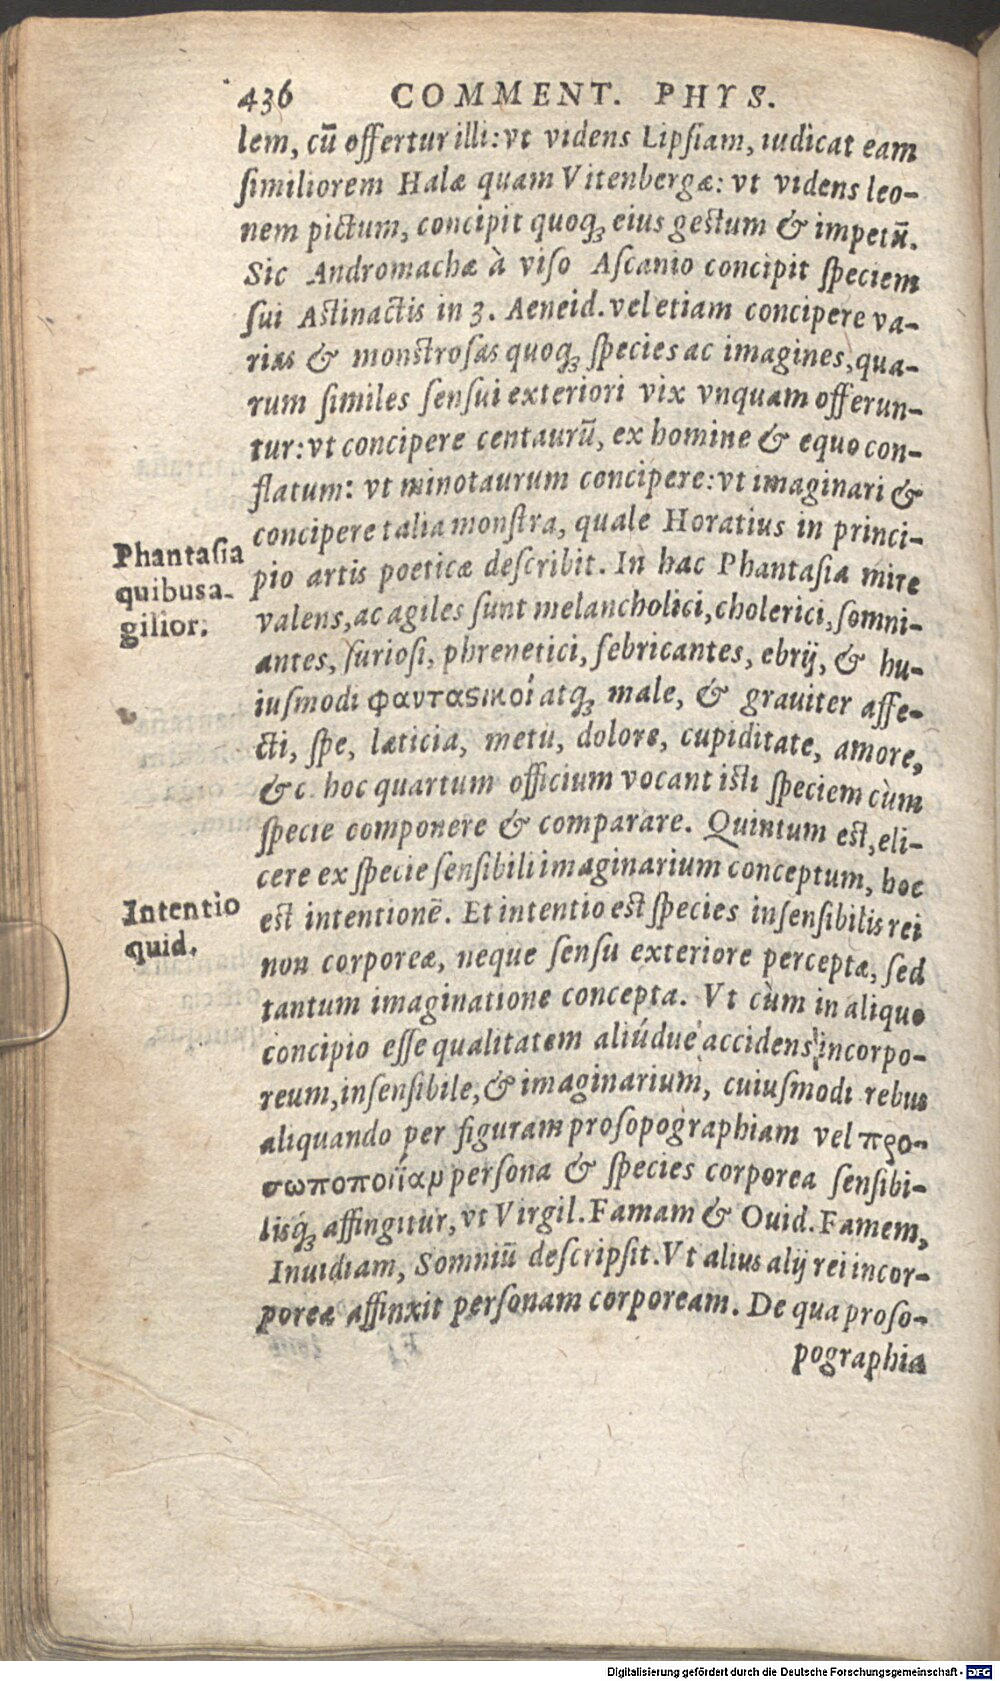 436 COMMENT. PHYS.
lem, cū offertur illi: vt videns Lipsiam, iudicat eam
similiorem Halæ quam Vitenbergæ: vt videns leo-
nem pictum, concipit quoqꝫ eius gestum & impetū.
Sic Andromachæ à viso Ascanio concipit speciem
sui Astinactis in 3. Aeneid. vel etiam concipere va-
rias & monstrosas quoqꝫ species ac imagines, qua-
rum similes sensui exteriori vix vnquam offerun-
tur: vt concipere centaurū, ex homine & equo con-
flatum: vt minotaurum concipere: vt imaginari &
concipere talia monstra, quale Horatius in princi-
pio artis poeticæ describit. In hac Phantasia mire
valens, ac agiles sunt melancholici, cholerici, somni-
antes, furiosi, phrenetici, febricantes, ebrij, & hu-
iusmodi φανταςικοί atqꝫ male, & grauiter affe-
cti, spe, læticia, metu, dolore, cupiditate, amore,
&c. hoc quartum officium vocant isti speciem cùm
specie componere & comparare. Quintum est, eli-
cere ex specie sensibili imaginarium conceptum, hoc
est intentionē. Et intentio est species insensibilis rei
non corporeæ, neque sensu exteriore perceptæ, sed
tantum imaginatione concepta. Vt cùm in aliquo
concipio esse qualitatem aliúdue accidens incorpo-
reum, insensibile, & imaginarium, cuiusmodi rebus
aliquando per figuram prosopographiam vel προ-
σωποποιίαν persona & species corporea sensibi-
lisqꝫ affingitur, vt Virgil. Famam & Ouid. Famem,
Inuidiam, Somniū descripsit. Vt alius alij rei incor-
poreæ affinxit personam corpoream. De qua proso-
pographia
Phantasia
quibus a-
gilior.
Intentio
quid.
Digitalisierung gefördert durch die Deutsche Forschungsgemeinschaft - DFG